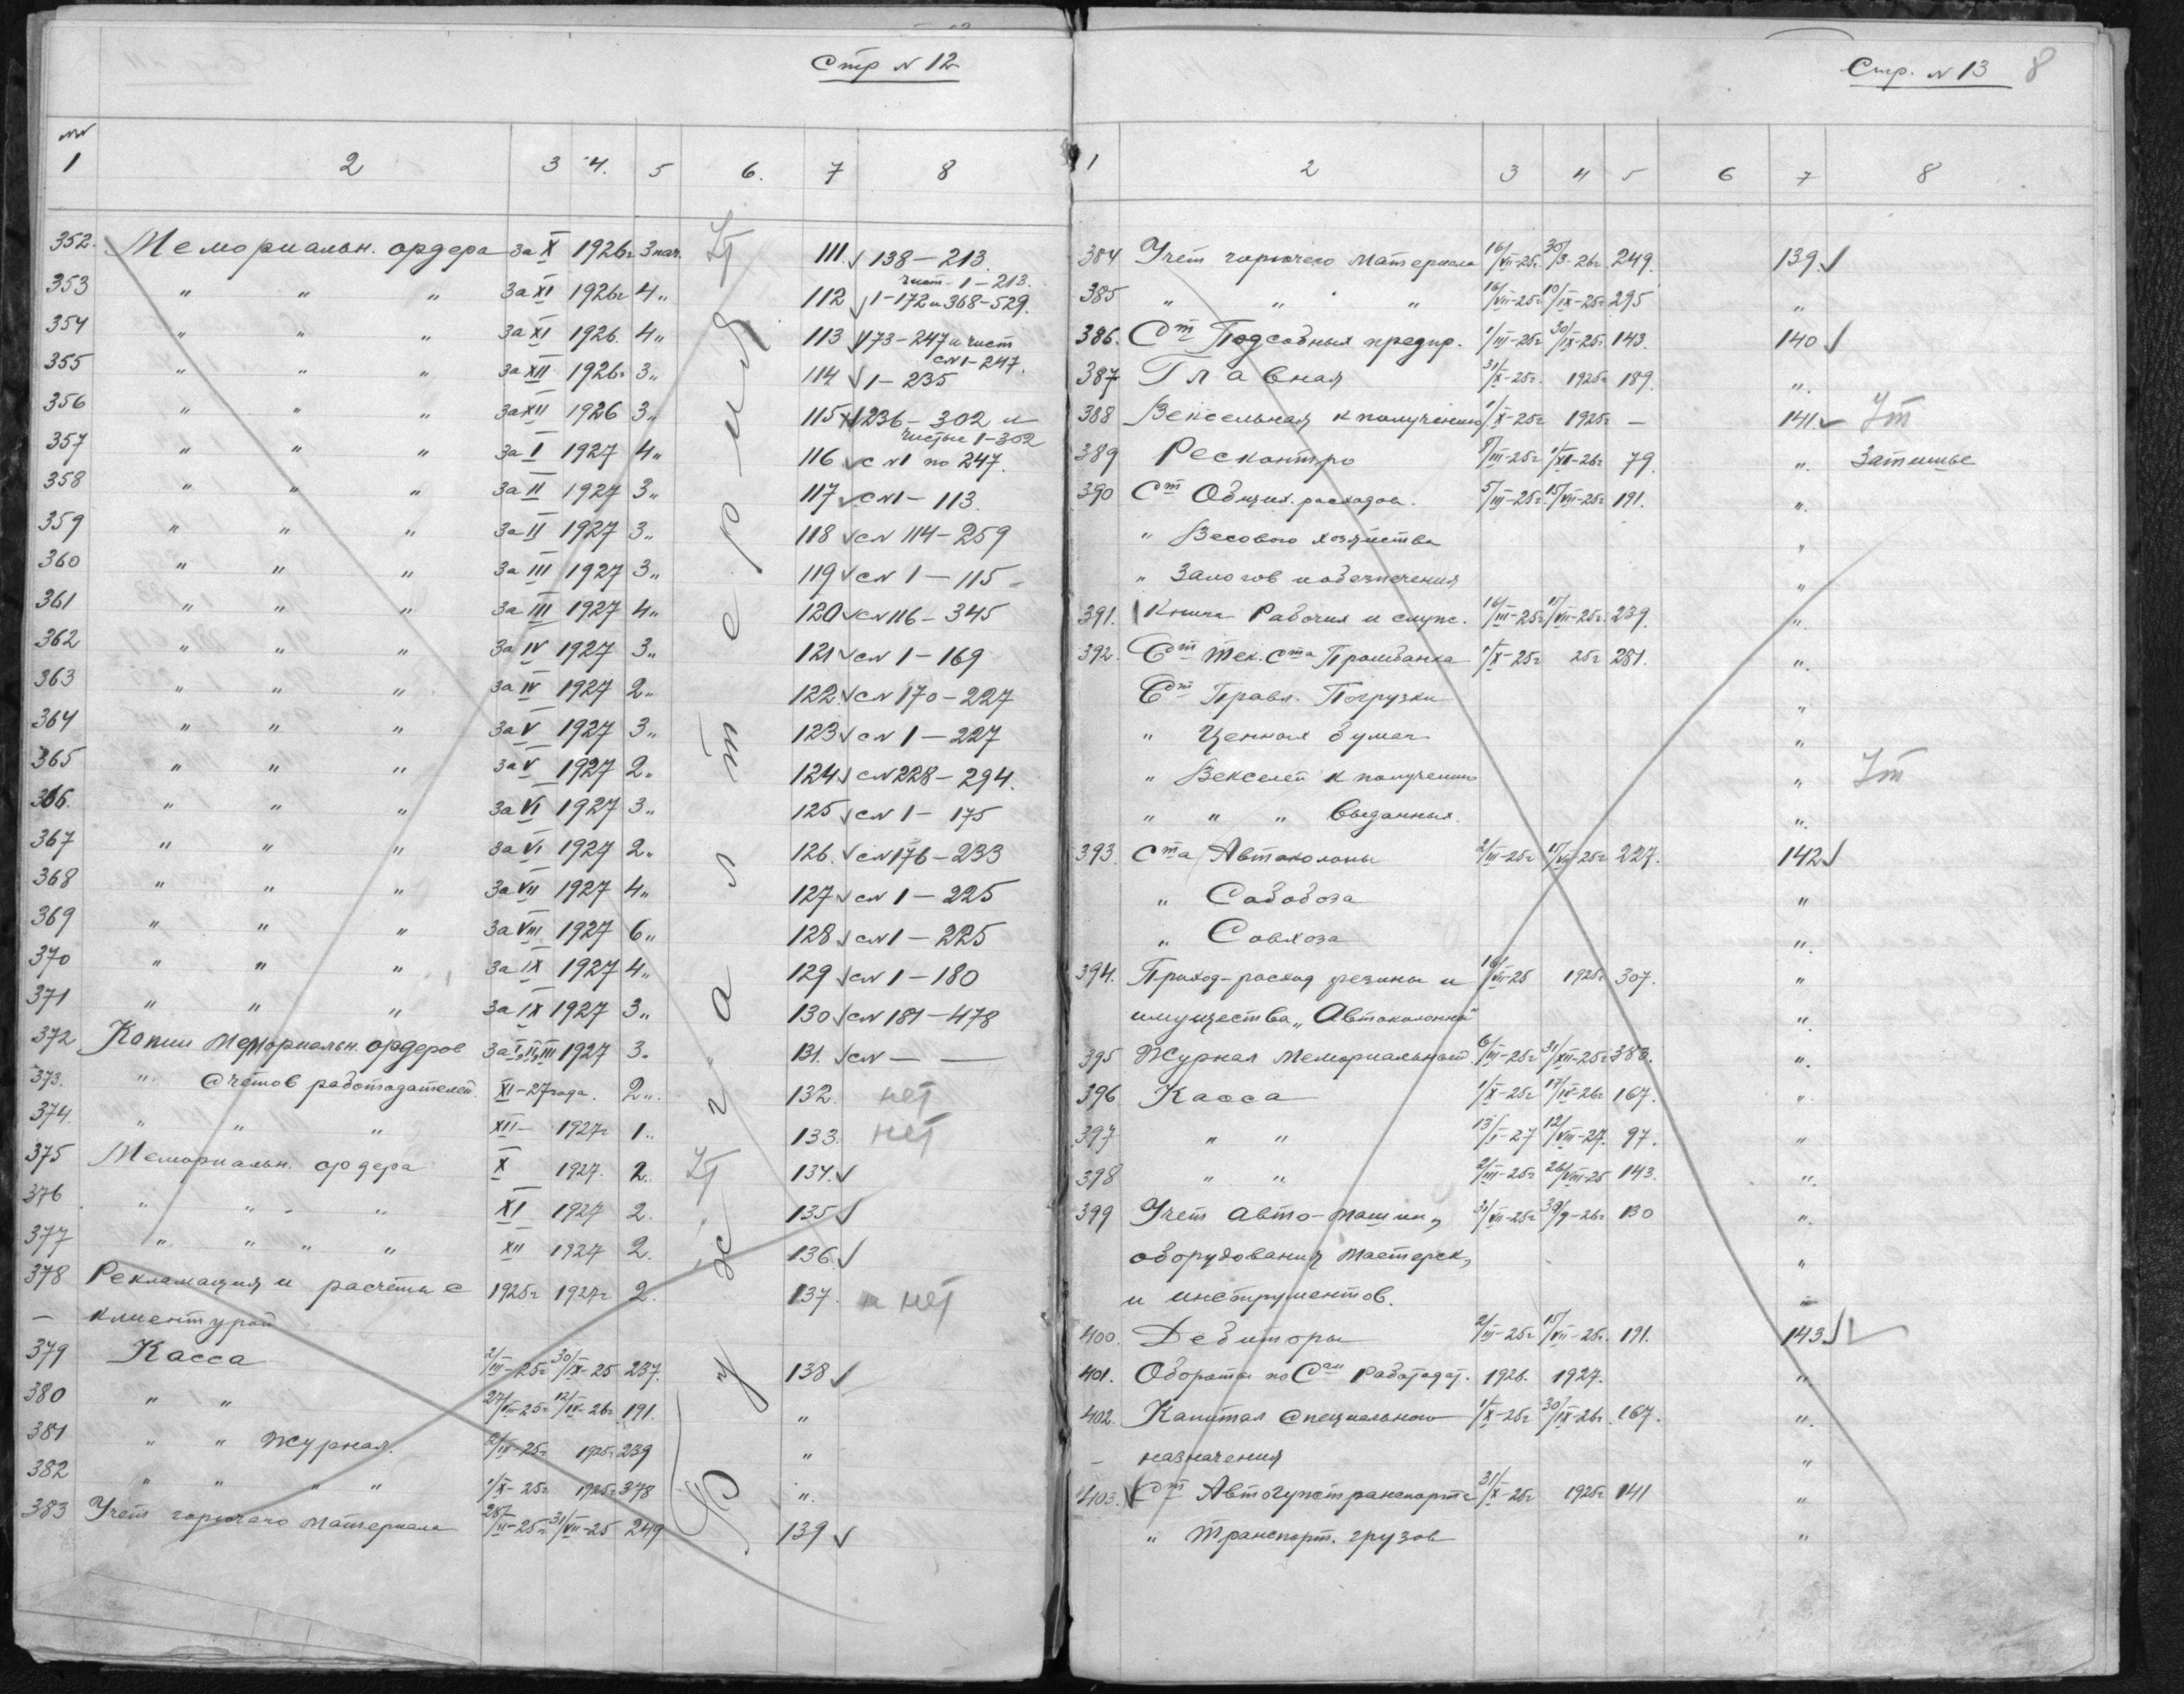 Стр № 12
№№
1 2 3 4. 5 6. 7 8
352. Мемориальн. ордера за X 1926г 3 пач. 111. √ 138 – 213.
чист 1 – 213.
353 " " " за XI 1926г 4 " 112 √ 1 – 172 и 368 – 529.
354 " " " за XI 1926. 4 " 113 √ 173 – 247 и чист
с№ 1 – 247.
355 " " " за XII 1926г 3 " 114 √ 1 – 235
356 " " " за XII 1926 3 " 115 √ 236 – 302 и
чистые 1 – 302
357 " " " за I 1927 4 " 116 √ с №1 по 247.
358 " " " за II 1927 3 " 117 √ с №1 – 113.
359 " " " за II 1927 3 " 118 √ с№ 114 – 259
360 " " " за III 1927 3 " 119 √ с№ 1 – 115
361 " " " за III 1927 4 " 120 √ с№ 116 – 345
362 " " " за IV 1927 3 " 121 √ с№ 1 – 169
363 " " " за IV 1927 2 " 122. √ с№ 170 – 227
364 " " " за V 1927 3 " 123 √ с№ 1 – 227
365 " " " за V 1927 2 " 124 √ с№ 228 – 294.
366. " " " за VI 1927 3 " 125 √ с№ 1 – 175
367 " " " за VI 1927 2 " 126. √ с№ 176 – 233
368 " " " за VII 1927 4 " 127 √ с№ 1 – 225
369 " " " за VIII 1927 6 " 128 √ с№ 1 – 225
370 " " " за IX 1927 4 " 129 √ с№ 1 – 180
371 " " " за IX 1927 3 " 130 √ с№ 181 – 478
372 Копии мемориальн. ордеров за I, II, III 1927 3 " 131. √ с№ — —
373. " счетов работодателей. XI – 27 года. 2 " 132. нет
374. " " " XII – 1927г 1 " 133. нет
375 Мемориальн. ордера X 1927. 2. 134. √
376 " " " XI 1927 2. 135 √
377 " " " " XII 1927 2. 136 √
378 Рекламация и расчеты с 1925г 1927г 2. 137. нет
— клиентурой
379 Касса 2/III – 25г 30/IX – 25 237. 138 √
380 " " 27/VII – 25г 12/IV – 26г. 191. "
381 " " Журнал. 2/III – 25г 1925г 239 "
382 " " " " 1/X – 25г 1925г 378 "
383 Учет горючего материала 25/II – 25г 31/VII – 25 249 139 √
Бухгалтерия
Стр. № 13 8
1 2 3 4 5 6 7 8
384 Учет горючего материала 16/VII – 25г. 30/3 – 26г. 249. 139 √
385 " " " 16/VII – 25г 10/IX – 25г 295 "
386. Сm Подсобных предпр. 1/III – 25г 30/IX – 25г. 143. 140 √
387 Главная 31/X – 25г. 1925г 189. "
388 Вексельная к получению 1/X – 25г 1925г – 141 √ Ут
389 Ресконтро 8/III – 25г 1/XI – 26г 79. " Затишье
390 Сm Общих. расходов. 5/III – 25г. 15/VII – 25г 191. "
" Весового хозяйства "
" Залогов и обезпечения "
391. Книга Рабочих и служ. 16/III – 25г 15/VII – 25г. 239. "
392. Сm Тек. Сmа Промбанка 1/X – 25г 25г 281. "
Сm Правл. Погрузки "
" Ценных бумаг "
" Векселей к получению " Ут
" " " выданных. "
393. Сmа Автоколоны 2/III – 25г 15/VII – 25г 227. 142 √
" Сободоза "
" Совхоза "
394. Приход-расход резины и 16/VII – 25 1925г 307. "
имущества „Автоколонна" "
395 Журнал Мемориальный 6/III – 25г 31/XII – 25г 383. "
396 Касса 1/X – 25г 17/IV – 26г 167. "
397 " " 13/I – 27 12/VIII – 27. 97. "
398 " " 2/III – 25г 26/VIII – 25 143. "
399 Учет авто-машин, 31/VII – 25г 30/9 – 26г 130 "
оборудования мастерск, "
и инструментов. "
400. Дебиторы 2/III – 25г 15/VII – 25г. 191. 143 √
401. Обороты по Сам Работодат. 1926. 1927. "
402. Капитал специального 1/X – 25г 30/IX – 26г. 167. "
– назначения "
403. Сm Автогужтранспорта 31/X – 25г 1925г 141 "
" Транспорт. грузов "